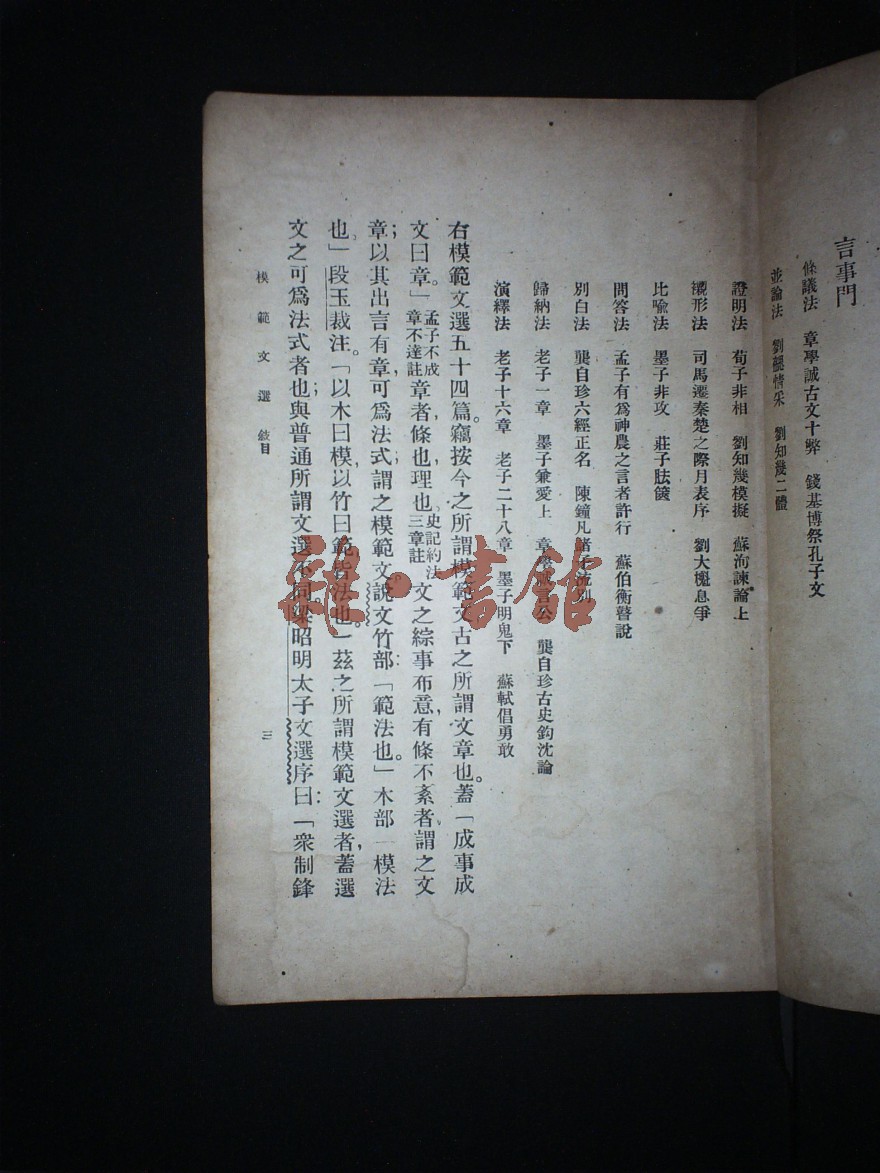 言事門
條議法　章學誠古文十弊　錢基博祭孔子文
並論法　劉勰情采　劉知幾二體
證明法　荀子非相　劉知幾模擬　蘇洵諫論上
攝形法　司馬遷秦楚之際月表序　劉大櫆息爭
比喩法　墨子非攻　莊子胠篋
問答法　孟子有爲神農之言者許行　蘇伯衡瞽說
別白法　龔自珍六經正名　陳鐘凡諸子流別
歸納法　老子一章　墨子兼愛上　章學誠言公　龔自珍古史鈎沈論
演繹法　老子十六章　老子二十八章　墨子明鬼下　蘇軾倡勇敢
右模範文選五十四篇。竊按今之所謂模範文古之所謂文章也。蓋「成事成
文曰章。」孟子不成章不達註章者，條也，理也，史記約法三章註文之綜事布意，有條不紊者，謂之文
章；以其出言有章，可爲法式；謂之模範文。說文竹部：「範法也。」木部「模法
也。」段玉裁注。「以木曰模，以竹曰範，皆法也。」茲之所謂模範文選者，蓋選
文之可爲法式者也；與普通所謂文選不同。梁昭明太子文選序曰：「衆制鋒
模範文選　敍目
三
雜·書館